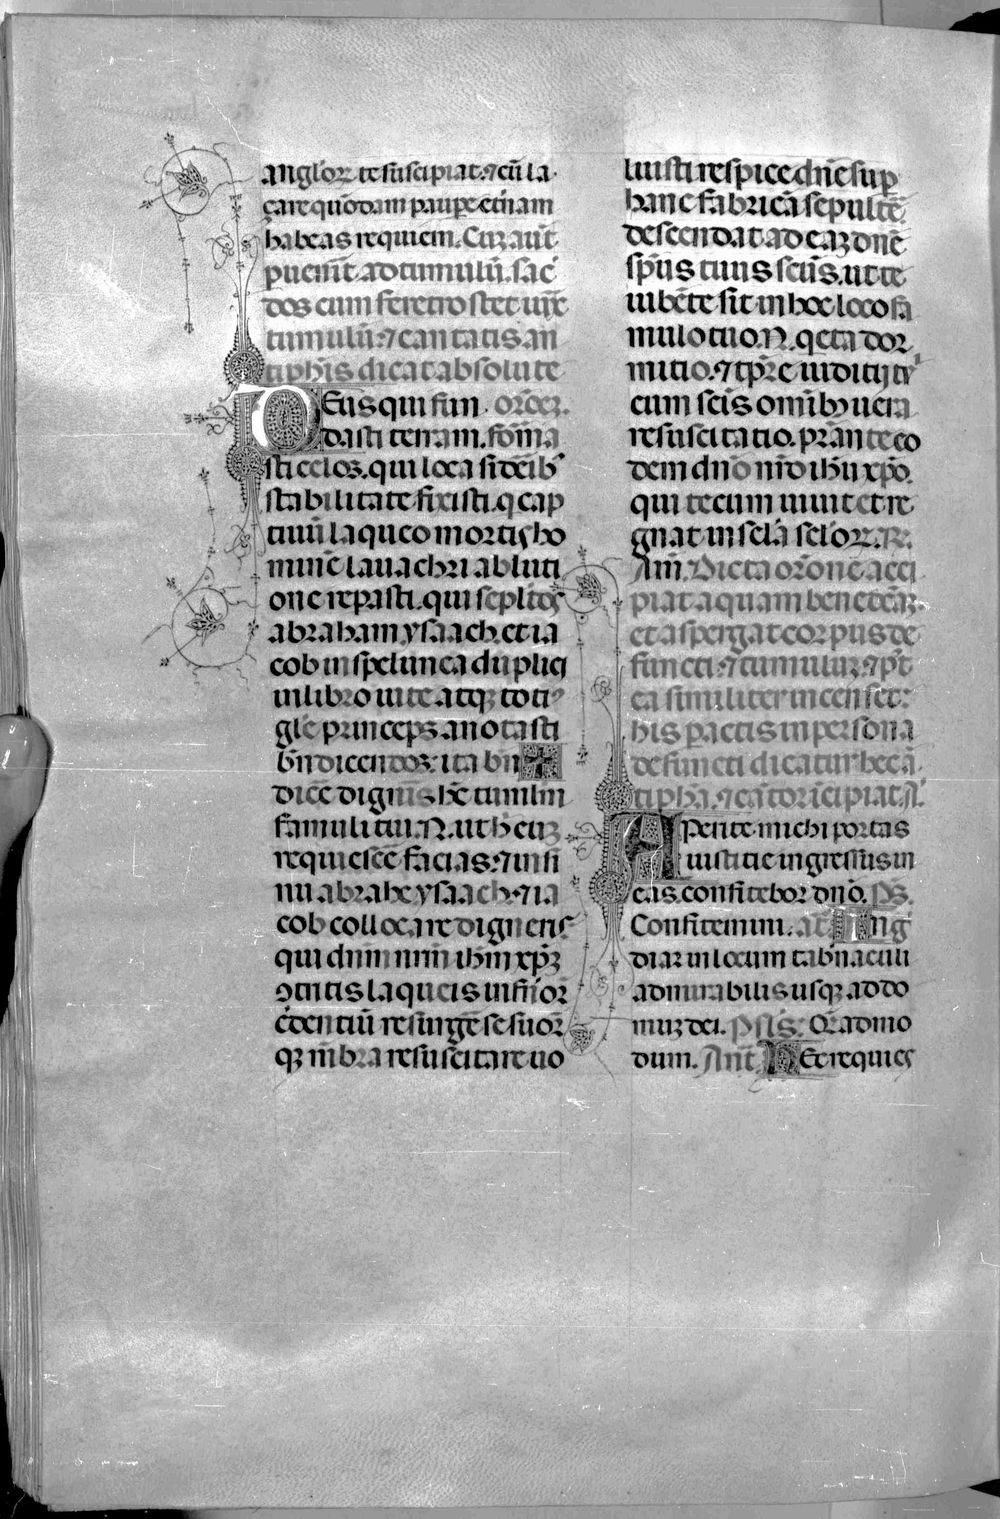 anglorꝫ te suscipiat. ⁊ cū la
çare quōdam paupe etn̄am
habeas requiem. Cuꝫ aut̄
puenīt ad tumulū. sac̄
dos cum feretro stet iux̄
tumulū. ⁊ cantatis an
tiphīs dicat absolute
DEus qui fun oroēꝫ.
dasti terram. form̄a
sti celos. qui loca siderib᾽
stabilitate fixisti. q cap
tiuū laqueo mortis ho
minē lauachri abluti
one repasti. qui seplitos
abraham ysaach. et ia
cob in spelunca duplici
in libro uite atqꝫ toti᾽
glē princeps anotasti
bn̄dicendos: ita bn̄ ✠
dicē digneris hē tumlm̄
famuli tui. N. ut h̄ euꝫ
requiescē facias: ⁊ in si
nu abrahe ysaach. ⁊ ia
cob collocare digneris
qui dnm̄ nrm̄ ihm̄ xp̄ꝫ
ↄtritis laqueis infrīor
c̄dentiū resurgē se suorꝫ
qꝫ mb̄ra resuscitare uo
luisti respice dn̄e sup̄
hanc fabricā sepulte
descendat ad eaꝫ dn̄e
sp̄us tuus scūs. ut te
iubēte sit in hoc loco fa
mulo tuo. N. q̄eta dor
mitio. ⁊ tp̄re iuditij tꝰ
cum sc̄is omib; uera
resuscitatio. p̄rānte eo
dem dn̄o nr̄o ihū xp̄o.
qui tecum uiuit et re
gnat in sc̄la sc̄lorꝫ. R.
Am̄. Dicta or̄one acci
piat aquam benedc̄aꝫ.
et aspergat corpus de
functi. ⁊ tumuluꝫ. ⁊ p̄t
ea similiter incenset:
his p̄actis in persona
defuncti dicatur hec ā
tipha. ⁊ cātor īcipiat. A.
APerite michi portas
iustitie ingressus in
eas. confitebor dn̄o. ps̄.
Confitemini. an̄. Ing
diar in locum tabn̄aculi
admirabilis usqꝫ ad do
muꝫ dei. Psl̄s: Q̄m admo
dum. Ant̄. HEc requies